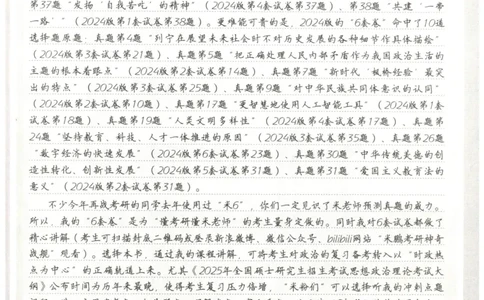 第37题“发扬‘自我苦吃’的精神”（2024版第4套试卷第37题）、第38题“共建‘一带
一路’”（2024版第6套试卷第38题）。更难能可贵的是，2024版的“6套卷”命中了10道
选择题原题：真题第4题“列宁在展望未来社会时不对历史发展的各种细节作具体描绘”
（2024版第3套试卷第21题）、真题第5题“把正确处理人民内部矛盾作为我国政治生活的
主题的根本着眼点”（2024版第2套试卷第14题）、真题第7题“新时代‘枫桥经验’最突
出的特点”（2024版第3套试卷第25题）、真题第9题“对中华民族共同体意识的认同”
（2024版第2套试卷第10题）、真题第17题“更智慧地使用人工智能工具”（2024版第1套
试卷第18题）、真题第19题“人类文明多样性”（2024版第4套试卷第17题）、真题第
24题“坚持教育、科技、人才一体推进的原因”（2024版3套试卷第35题）、真题第26题
“数字经济的快速发展”（2024版第6套试卷第23题）、真题第30题“中华传统美德的创
造性转化、创新性发展”（2024版第5套试卷第31题）、真题第31题“爱国主义教育法的
意义”（2024版第2套试卷第31题）。
不少今年再战考研的同学去年使用过“米6”，你们一定见识了米老师预测真题的威力。
所以，我的“6套卷”是为“懂考研懂米老师”的考生量身定做的。同时我对6套卷都做了
精心讲解（考生可扫描封底二维码或登录新浪微博、微信公众号、bilibili网站“米鹏考研神奇
战舰”观看）。选择本书，通过我的课程讲解，可将考生对政治的复习备考转入以“时政热
点为中心”的正确轨道上来。尤其《2025年全国硕士研究生招生考试思想政治理论考试大
纲》公布时间为历年来最晚，使得考生复习压力倍增，“米粉们”可以选择听我的冲刺点题